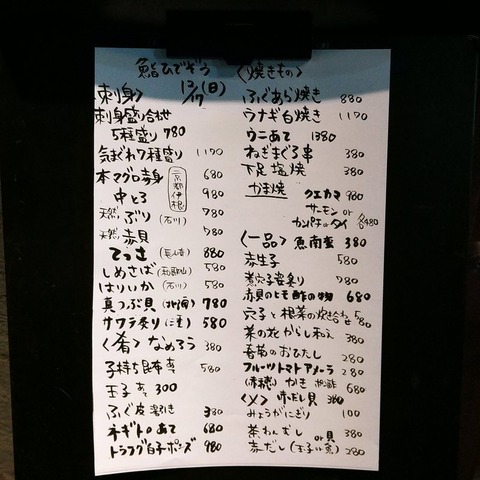 鮨ひでぞう
12/17(日)
〈刺身〉
刺身盛り合わせ
5種盛り 780
気まぐれ7種盛り 1170
本マグロ赤身 680
中とろ 980
京都伊根
天然ぶり(石川) 780
天然赤貝 780
てっさ(長崎) 880
しめさば(和歌山) 580
はりいか(石川) 580
真つぶ貝 780
サワラ炙り(三重) 580
〈肴〉なめろう 380
子持ち昆布 580
玉子あて 300
ふぐ皮湯引き 380
ネギトロあて 680
トラフグ白子ポンズ 980
〈焼きもの〉
ふぐあら焼き 880
ウナギ白焼き 1170
ウニあて 1380
ねぎまぐろ串 380
下足塩焼 380
かま焼 クエカマ 980
サーモン or
カンパチ or タイ 各480
〈一品〉魚南蛮 380
赤生子 580
煮穴子炙り 780
赤貝のヒモ酢の物 680
穴子と根菜の炊合わせ 580
菜の花からし和え 380
春菊のおひたし 280
フルーツトマトアメーラ 280
(赤穂)かき 680
〈〆〉
みょうがにぎり 100
茶わんむし 380
赤だし(玉子 or 魚) 280
or貝